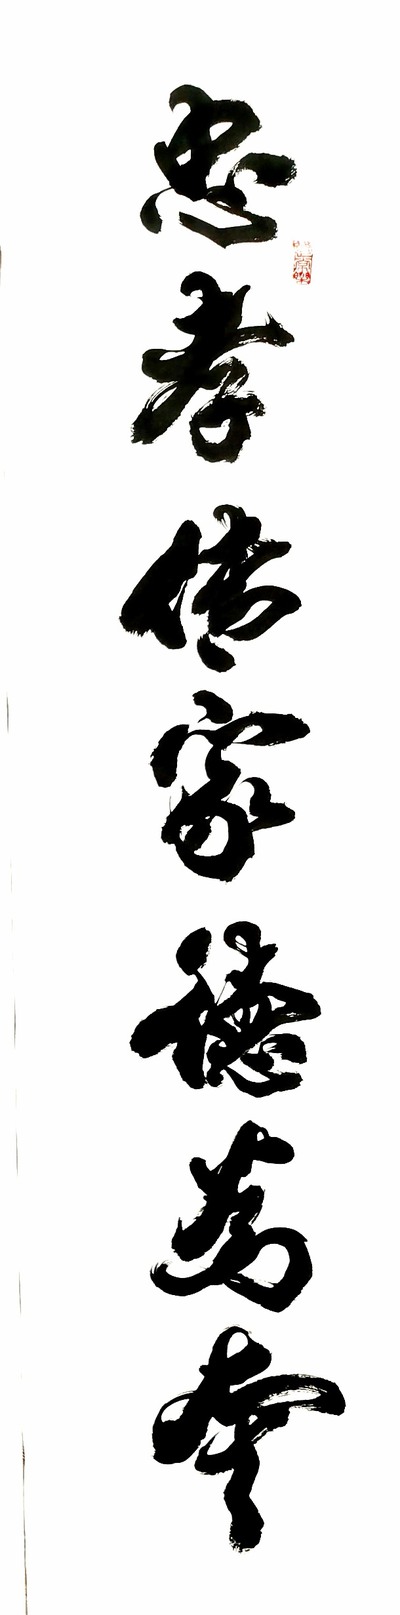 忠孝传家德为本